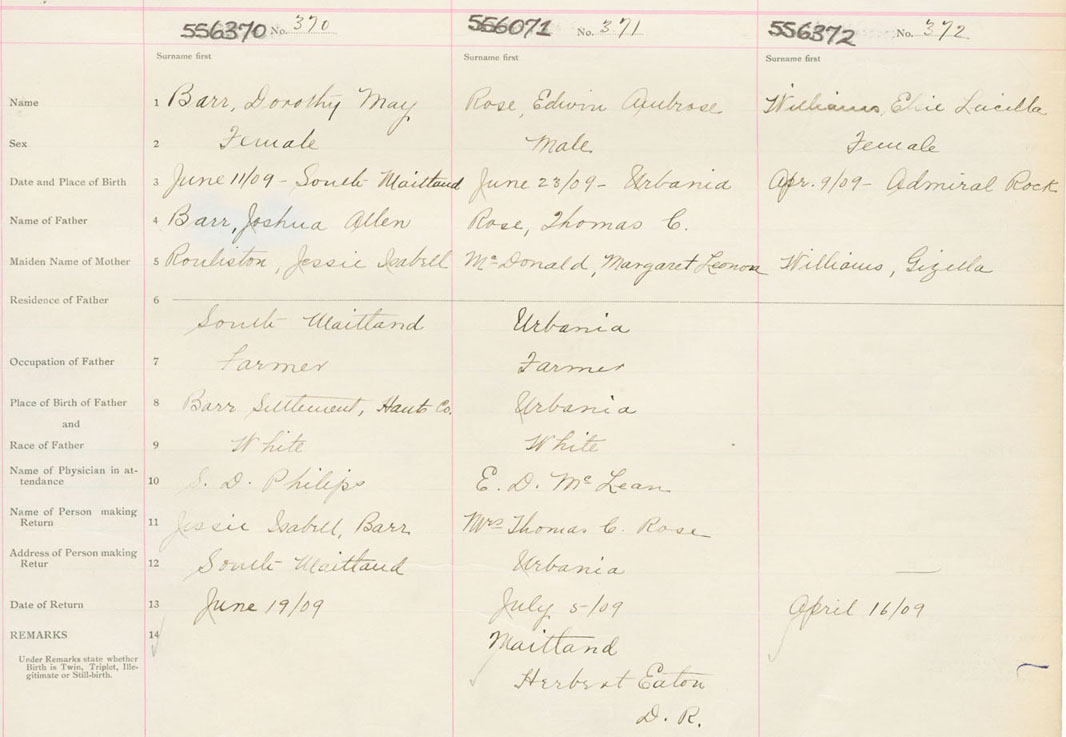 556370 No. 370 556071 No. 371 556372 No. 372
Surname first Surname first Surname first
Name 1 Barr, Dorothy May Rose, Edwin Ambrose Williams, Elsie Lucilla
Sex 2 Female Male Female
Date and Place of Birth 3 June 11/09 - South Maitland June 23/09 - Urbania Apr. 9/09 - Admiral Rock
Name of Father 4 Barr, Joshua Allen Rose, Thomas C.
Maiden Name of Mother 5 Rouliston, Jessie Isabell McDonald, Margaret Leonora Williams, Gizella
Residence of Father 6
South Maitland Urbania
Occupation of Father 7 Farmer Farmer
Place of Birth of Father 8 Barr Settlement, Hants Co. Urbania
and
Race of Father 9 White White
Name of Physician in at-
tendance 10 S. D. Philips E. D. McLean
Name of Person making
Return 11 Jessie Isabell, Barr Mrs Thomas C. Rose
Address of Person making
Retur 12 South Maitland Urbania —
Date of Return 13 June 19/09 July 5/09 April 16/09
REMARKS 14 Maitland
Under Remarks state whether
Birth is Twin, Triplet, Ille-
gitimate or Still-birth.
Herbert Eaton
D. R.